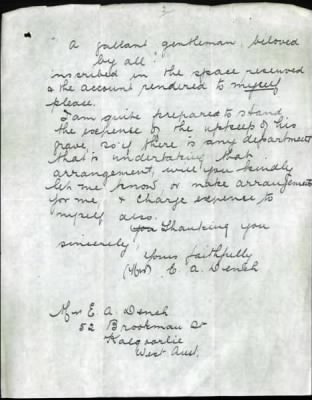 2
"A gallant gentleman, beloved
by all"
inscribed in the space reserved
& the account rendered to myself
please.
I am quite prepared to stand
the expense of the upkeep of his
grave, so if there is any department
that is undertaking that
arrangement, will you kindly
let me know or make arrangements
for me & charge expense to
myself also.
Thanking you
sincerely
Yours faithfully
(Mrs) E. A. Dench
Mrs E. A. Dench
52 Brookman St
Kalgoorlie
West Aust.